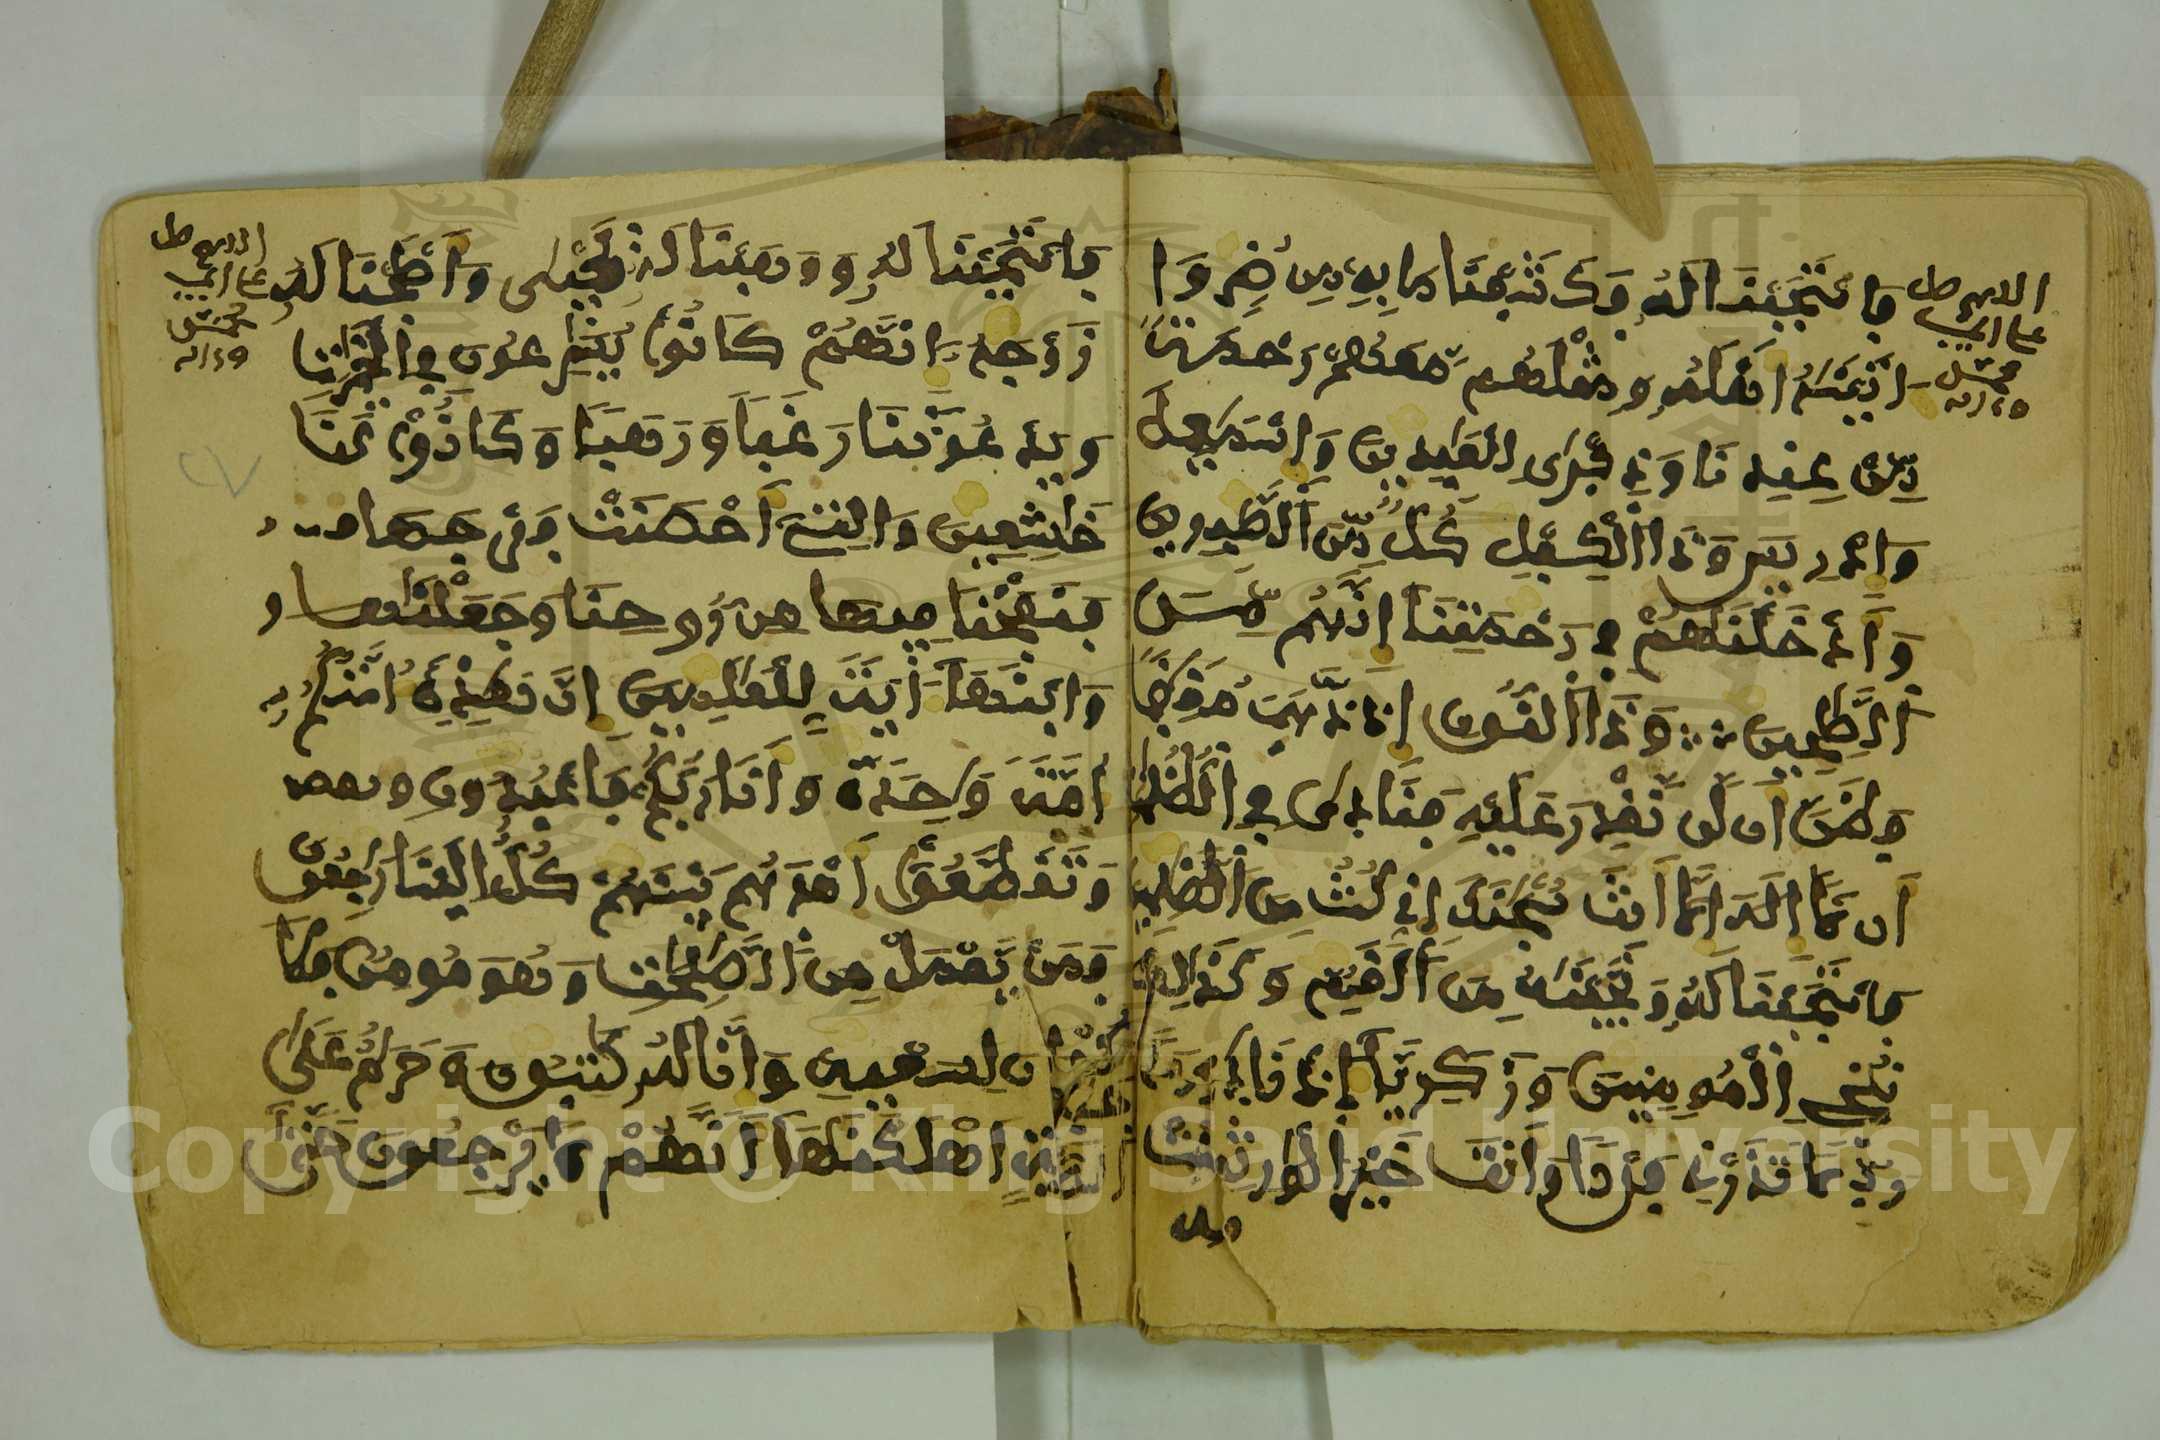 اللهم صل
على النبي
محمد صل
وءاله
فاستجبنا له فكشفنا ما به من ضر وا
اتينه اهله ومثلهم معهم رحمة
من عندنا وذكرى للعبدين واسمعيل
وادريس وذا الكفل كل من الصبرين
وادخلنهم في رحمتنا انهم من
الصلحين وذا النون اذ ذهب مغضبا
فظن ان لن نقدر عليه فنادى في الظلمت
ان لا اله الا انت سبحنك اني كنت من الظلمين
فاستجبنا له ونجينه من الغم وكذلك
نجي المومنين وزكريا اذ نادى ربه
رب لا تذرني فردا وانت خير الورثين
اللهم صل
على النبي
محمد صل
وءاله
فاستجبنا له ووهبنا له يحيى واصلحنا له
زوجه انهم كانوا يسرعون في الخيرت
ويدعوننا رغبا ورهبا وكانوا لنا
خشعين والتي احصنت فرجها
فنفخنا فيها من روحنا وجعلنها
وابنها اية للعلمين ان هذه امتكم
امة وحدة وانا ربكم فاعبدون
وتقطعوا امرهم بينهم كل الينا رجعون
فمن يعمل من الصلحت وهو مومن فلا
كفران لسعيه وانا له كتبون وحرم على
قرية اهلكنها انهم لا يرجعون حتى
Copyright © King Saud University